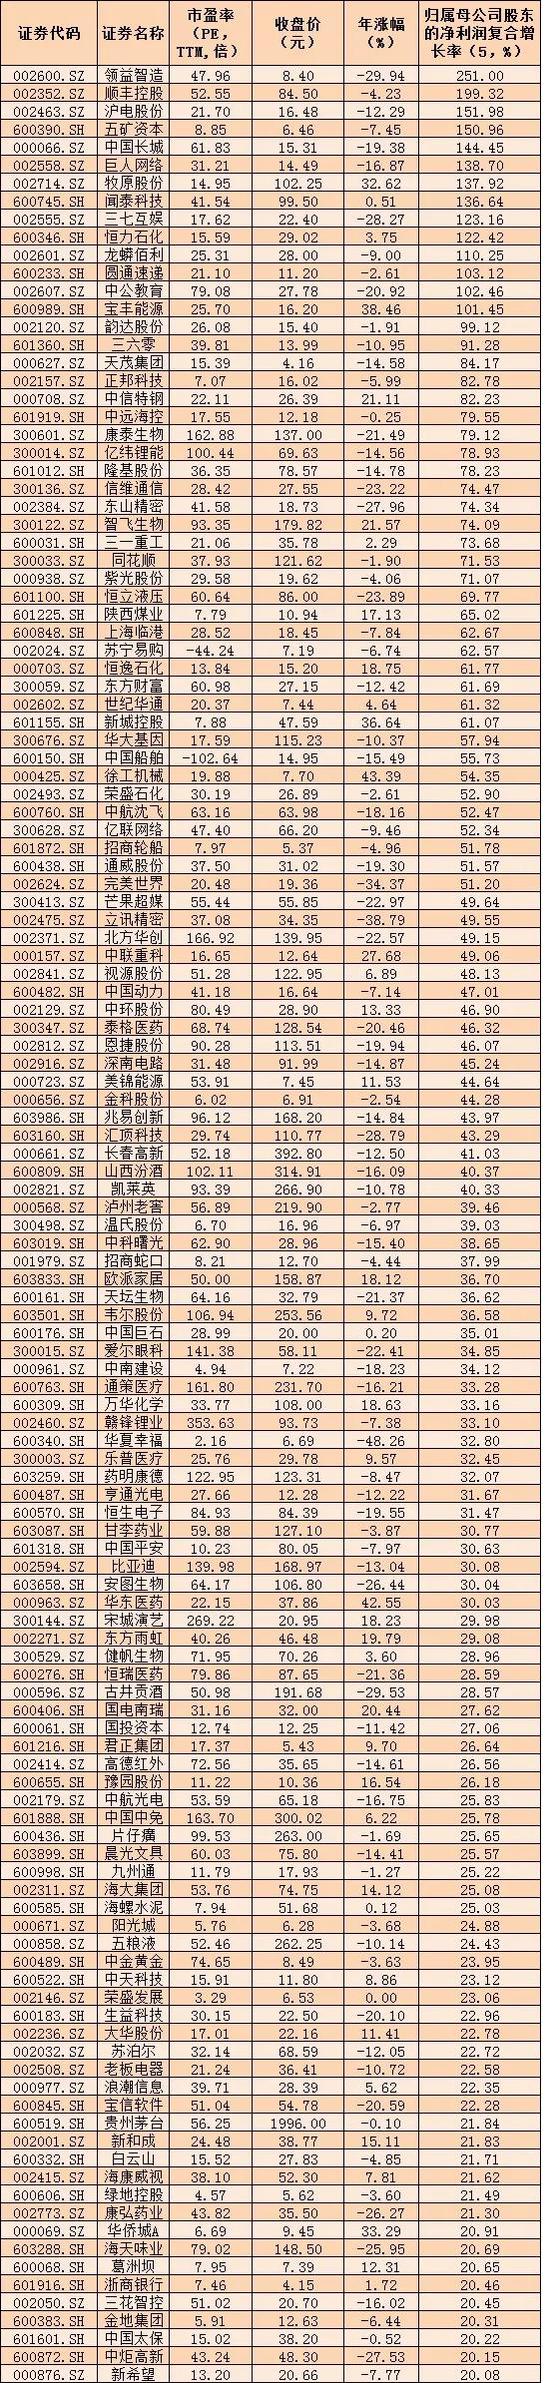 证券代码 证券名称 市盈率(PE,TTM,倍) 收盘价(元) 年涨幅(%) 归属母公司股东的净利润复合增长率(5,%)
002600.SZ 领益智造 47.96 8.40 -29.94 251.00
002352.SZ 顺丰控股 52.55 84.50 -4.23 199.32
002463.SZ 沪电股份 21.70 16.48 -12.29 151.98
600390.SH 五矿资本 8.85 6.46 -7.45 150.96
000066.SZ 中国长城 61.83 15.31 -19.38 144.45
002558.SZ 巨人网络 31.21 14.49 -16.87 138.70
002714.SZ 牧原股份 14.95 102.25 32.62 137.92
600745.SH 闻泰科技 41.54 99.50 0.51 136.64
002555.SZ 三七互娱 17.62 22.40 -28.27 123.16
600346.SH 恒力石化 15.59 29.02 3.75 122.42
002601.SZ 龙蟒佰利 25.31 28.00 -9.00 110.25
600233.SH 圆通速递 21.10 11.20 -2.61 103.12
002607.SZ 中公教育 79.08 27.78 -20.92 102.46
600989.SH 宝丰能源 25.70 16.20 38.46 101.45
002120.SZ 韵达股份 26.08 15.40 -1.91 99.12
601360.SH 三六零 39.81 13.99 -10.95 91.28
000627.SZ 天茂集团 15.39 4.16 -14.58 84.17
002157.SZ 正邦科技 7.07 16.02 -5.99 82.78
000708.SZ 中信特钢 22.11 26.39 21.11 82.23
601919.SH 中远海控 17.55 12.18 -0.25 79.55
300601.SZ 康泰生物 162.88 137.00 -21.49 79.12
300014.SZ 亿纬锂能 100.44 69.63 -14.56 78.93
601012.SH 隆基股份 36.35 78.57 -14.78 78.23
300136.SZ 信维通信 28.42 27.55 -23.22 74.47
002384.SZ 东山精密 41.58 18.73 -27.96 74.34
300122.SZ 智飞生物 93.35 179.82 21.57 74.09
600031.SH 三一重工 21.06 35.78 2.29 73.68
300033.SZ 同花顺 37.93 121.62 -1.90 71.53
000938.SZ 紫光股份 29.58 19.62 -4.06 71.07
601100.SH 恒立液压 60.64 86.00 -23.89 69.77
601225.SH 陕西煤业 7.79 10.94 17.13 65.02
600848.SH 上海临港 28.52 18.45 -7.84 62.67
002024.SZ 苏宁易购 -44.24 7.19 -6.74 62.57
000703.SZ 恒逸石化 13.84 15.20 18.75 61.77
300059.SZ 东方财富 60.98 27.15 -12.42 61.69
002602.SZ 世纪华通 20.37 7.44 4.64 61.32
601155.SH 新城控股 7.88 47.59 36.64 61.07
300676.SZ 华大基因 17.59 115.23 -10.37 57.94
600150.SH 中国船舶 -102.64 14.95 -15.49 55.73
000425.SZ 徐工机械 19.88 7.70 43.39 54.35
002493.SZ 荣盛石化 30.19 26.89 -2.61 52.90
600760.SH 中航沈飞 63.16 63.98 -18.16 52.47
300628.SZ 亿联网络 47.40 66.20 -9.46 52.34
601872.SH 招商轮船 7.97 5.37 -4.96 51.78
600438.SH 通威股份 37.50 31.02 -19.30 51.57
002624.SZ 完美世界 20.48 19.36 -34.37 51.20
300413.SZ 芒果超媒 55.44 55.85 -22.97 49.64
002475.SZ 立讯精密 37.08 34.35 -38.79 49.55
002371.SZ 北方华创 166.92 139.95 -22.57 49.15
000157.SZ 中联重科 16.65 12.64 27.68 49.06
002841.SZ 视源股份 51.28 122.95 6.89 48.13
600482.SH 中国动力 41.18 16.64 -7.14 47.01
002129.SZ 中环股份 80.49 28.90 13.33 46.90
300347.SZ 泰格医药 68.74 128.54 -20.46 46.32
002812.SZ 恩捷股份 90.28 113.51 -19.94 46.07
002916.SZ 深南电路 31.48 91.99 -14.87 45.24
000723.SZ 美锦能源 53.91 7.45 11.53 44.64
000656.SZ 金科股份 6.02 6.91 -2.54 44.28
603986.SH 兆易创新 96.12 168.20 -14.84 43.97
603160.SH 汇顶科技 29.74 110.77 -28.79 43.29
000661.SZ 长春高新 52.18 392.80 -12.50 41.03
600809.SH 山西汾酒 102.11 314.91 -16.09 40.37
002821.SZ 凯莱英 93.39 266.90 -10.78 40.33
000568.SZ 泸州老窖 56.89 219.90 -2.77 39.46
300498.SZ 温氏股份 6.70 16.96 -6.97 39.03
603019.SH 中科曙光 62.90 28.96 -15.40 38.65
001979.SZ 招商蛇口 8.21 12.70 -4.44 37.99
603833.SH 欧派家居 50.00 158.87 18.12 36.70
600161.SH 天坛生物 64.16 32.79 -21.37 36.62
603501.SH 韦尔股份 106.94 253.56 9.72 36.58
600176.SH 中国巨石 28.99 20.00 0.20 35.01
300015.SZ 爱尔眼科 141.38 58.11 -22.41 34.85
000961.SZ 中南建设 4.94 7.22 -18.23 34.12
600763.SH 通策医疗 161.80 231.70 -16.21 33.28
600309.SH 万华化学 33.77 108.00 18.63 33.16
002460.SZ 赣锋锂业 353.63 93.73 -7.38 33.10
600340.SH 华夏幸福 2.16 6.69 -48.26 32.80
300003.SZ 乐普医疗 25.76 29.78 9.57 32.45
603259.SH 药明康德 122.95 123.31 -8.47 32.07
600487.SH 亨通光电 27.66 12.28 -12.22 31.67
600570.SH 恒生电子 84.93 84.39 -19.55 31.47
603087.SH 甘李药业 59.88 127.10 -3.87 30.77
601318.SH 中国平安 10.23 80.05 -7.97 30.63
002594.SZ 比亚迪 139.98 168.97 -13.04 30.08
603658.SH 安图生物 64.17 106.80 -26.44 30.04
000963.SZ 华东医药 22.15 37.86 42.55 30.03
300144.SZ 宋城演艺 269.22 20.95 18.23 29.98
002271.SZ 东方雨虹 40.26 46.48 19.79 29.08
300529.SZ 健帆生物 71.95 70.26 3.60 28.96
600276.SH 恒瑞医药 79.86 87.65 -21.36 28.59
000596.SZ 古井贡酒 50.98 191.68 -29.53 28.57
600406.SH 国电南瑞 31.16 32.00 20.44 27.62
600061.SH 国投资本 12.74 12.25 -11.42 27.06
601216.SH 君正集团 17.37 5.43 9.70 26.64
002414.SZ 高德红外 72.56 35.65 -14.61 26.56
600655.SH 豫园股份 11.22 10.36 16.54 26.18
002179.SZ 中航光电 53.59 65.18 -16.75 25.83
601888.SH 中国中免 163.70 300.02 6.22 25.78
600436.SH 片仔癀 99.53 263.00 -1.69 25.65
603899.SH 晨光文具 60.03 75.80 -14.41 25.57
600998.SH 九州通 11.79 17.93 -1.27 25.22
002311.SZ 海大集团 53.76 74.75 14.12 25.08
600585.SH 海螺水泥 7.94 51.68 0.12 25.03
000671.SZ 阳光城 5.76 6.28 -3.68 24.88
000858.SZ 五粮液 52.46 262.25 -10.14 24.43
600489.SH 中金黄金 74.65 8.49 -3.63 23.95
600522.SH 中天科技 15.91 11.80 8.86 23.12
002146.SZ 荣盛发展 3.29 6.53 0.00 23.06
600183.SH 生益科技 30.15 22.50 -20.10 22.96
002236.SZ 大华股份 17.01 22.16 11.41 22.78
002032.SZ 苏泊尔 32.14 68.59 -12.05 22.72
002508.SZ 老板电器 21.24 36.41 -10.72 22.58
000977.SZ 浪潮信息 39.71 28.39 5.62 22.35
600845.SH 宝信软件 51.04 54.78 -20.59 22.28
600519.SH 贵州茅台 56.25 1996.00 -0.10 21.84
002001.SZ 新和成 24.48 38.77 15.11 21.83
600332.SH 白云山 15.52 27.83 -4.85 21.71
002415.SZ 海康威视 38.10 52.30 7.81 21.62
600606.SH 绿地控股 4.57 5.62 -3.60 21.49
002773.SZ 康弘药业 43.82 35.50 -26.27 21.30
000069.SZ 华侨城A 6.69 9.45 33.29 20.91
603288.SH 海天味业 79.02 148.50 -25.95 20.69
600068.SH 葛洲坝 7.95 7.39 12.31 20.65
601916.SH 浙商银行 7.46 4.15 1.72 20.46
002050.SZ 三花智控 51.02 20.70 -16.02 20.45
600383.SH 金地集团 5.91 12.63 -6.44 20.31
601601.SH 中国太保 15.02 38.20 -0.52 20.22
600872.SH 中炬高新 43.24 48.30 -27.53 20.15
000876.SZ 新希望 13.20 20.66 -7.77 20.08